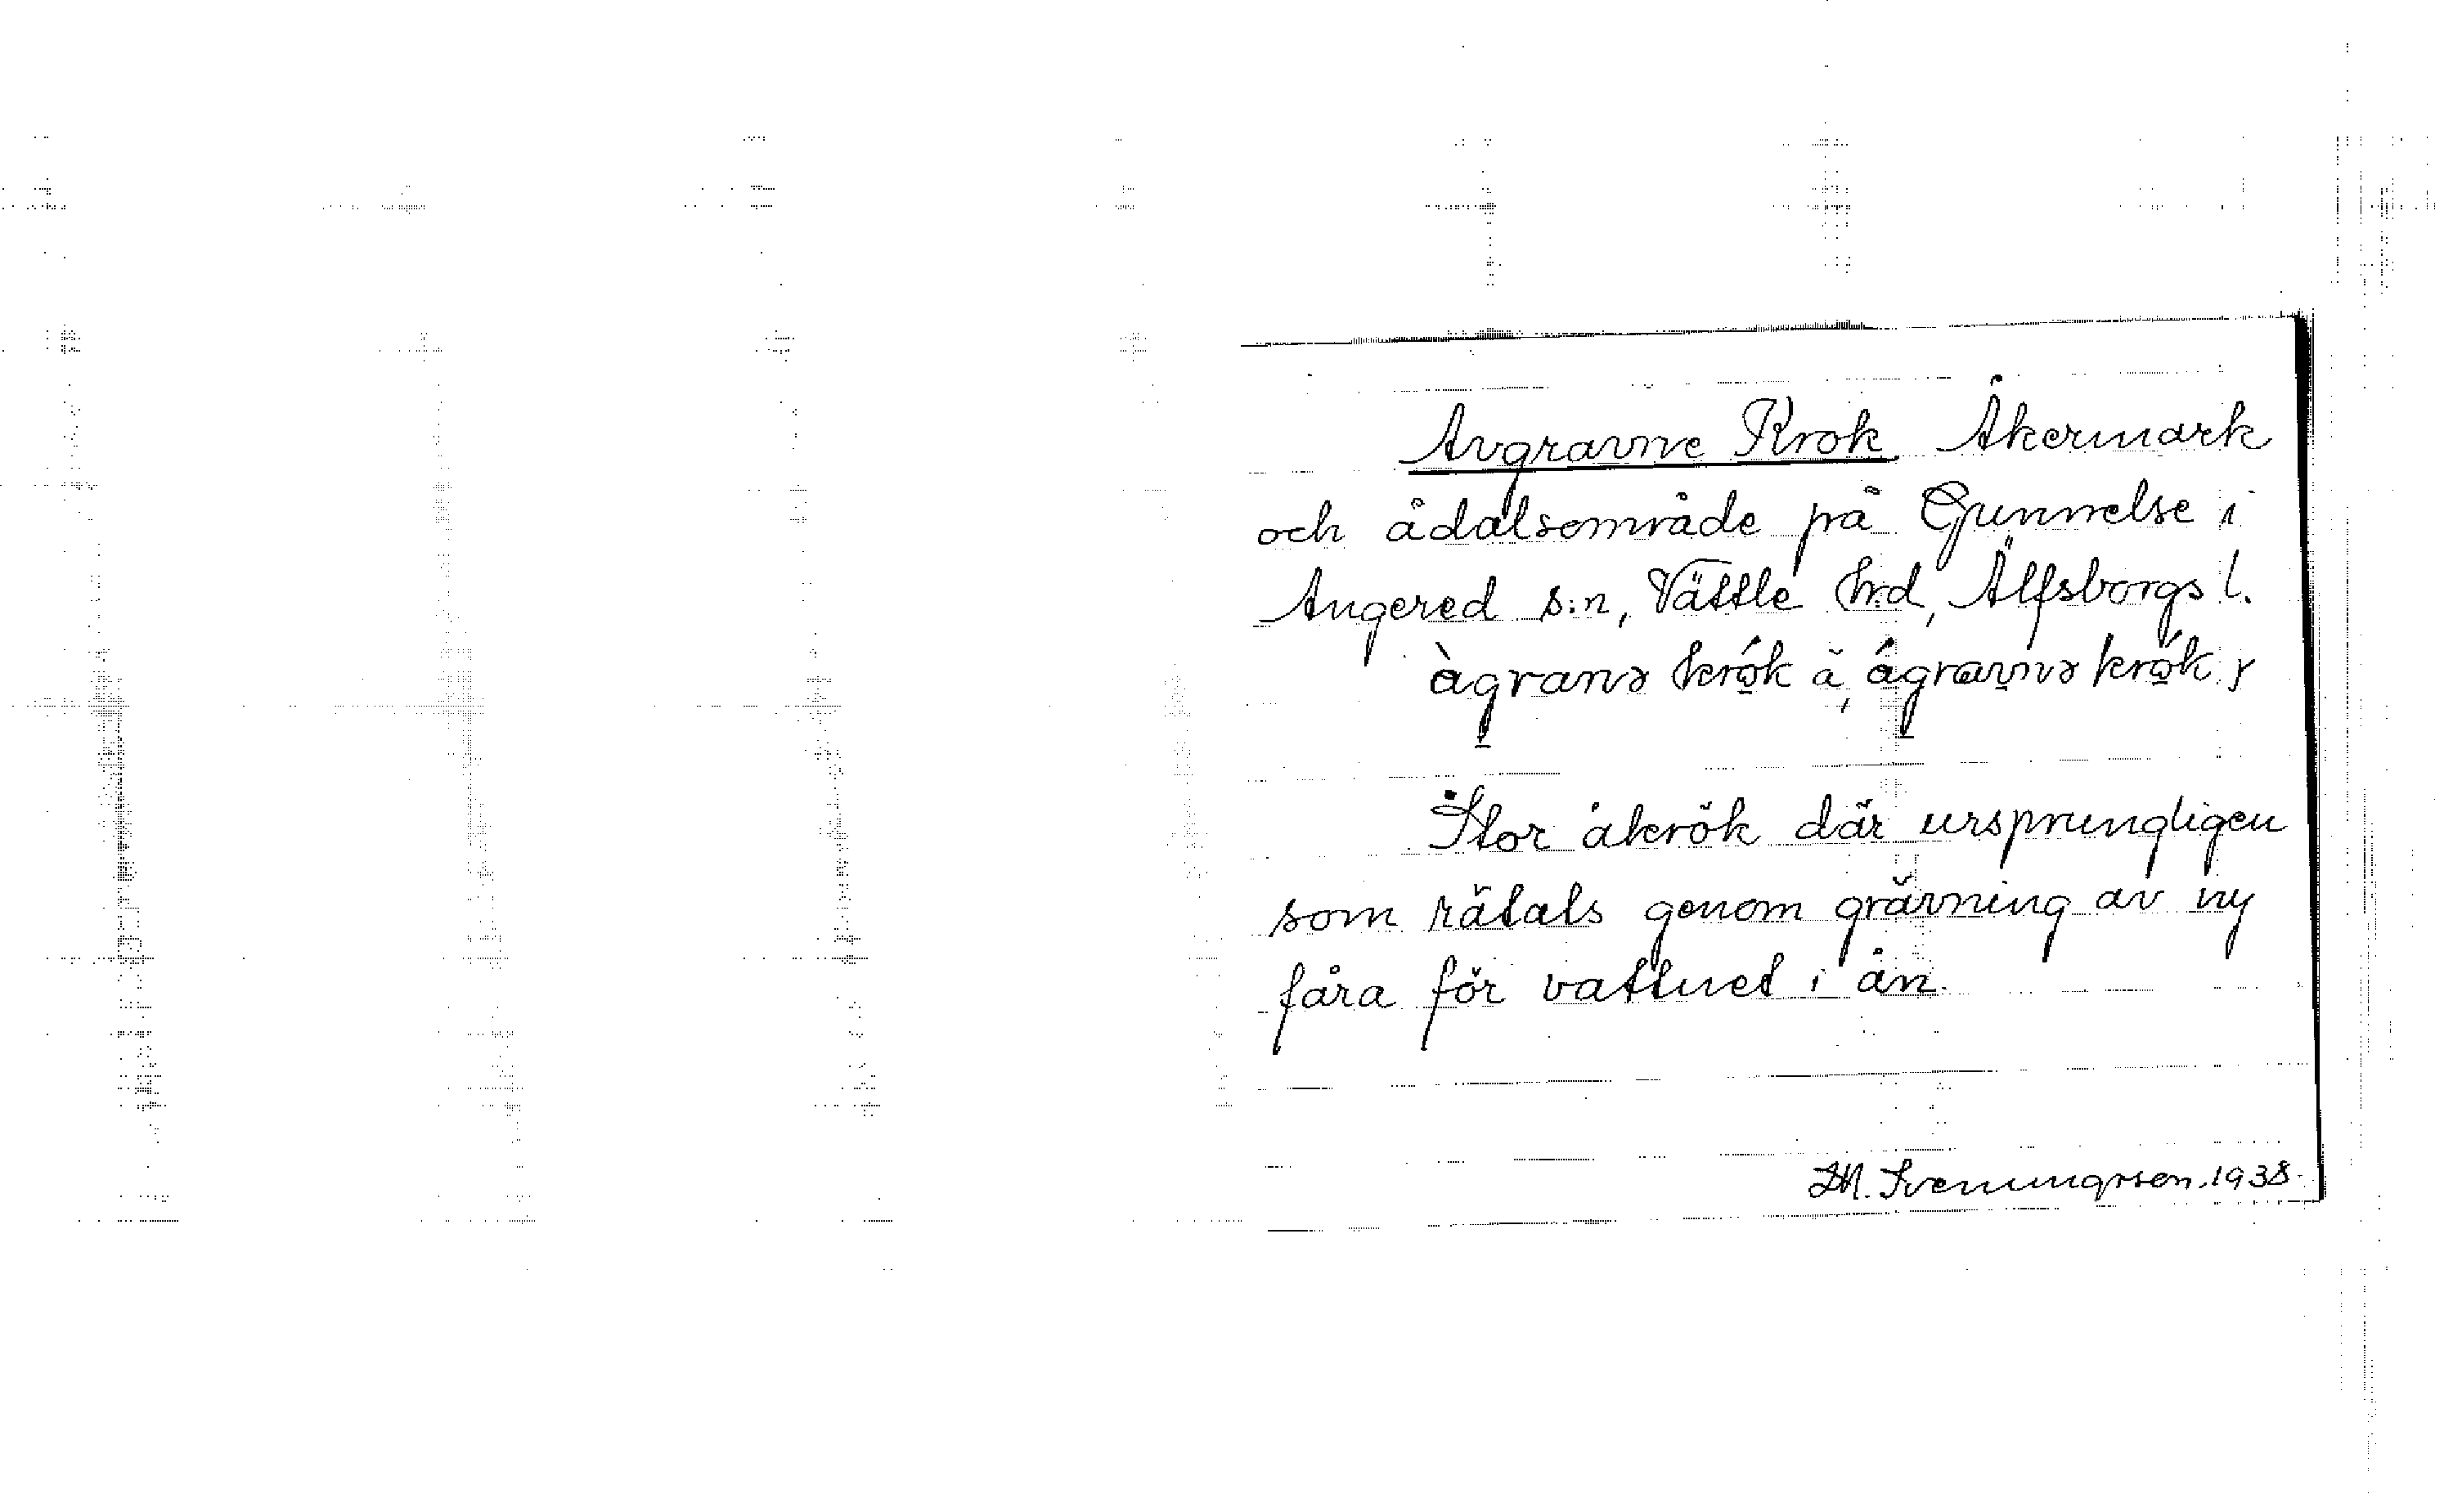 Avgravne Krok Åkermark
och ådalsområde på Gunnelse i
Angered s:n, Vättle hrd, Älfsborgs l.
àgranɘ krók å, ágravnɘ krók
Stor åkrök där ursprungligen
som rätats genom grävning av ny
fåra för vattnet i ån.
Sveningsson. 1938